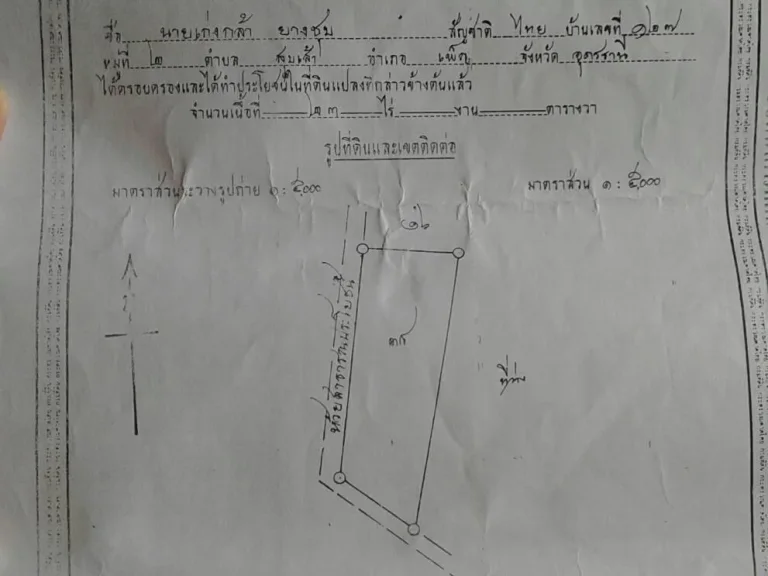 ชื่อ นายเก่งกล้า ยางชุม สัญชาติ ไทย บ้านเลขที่ ๑๒๗
หมู่ที่ ๒ ตำบล สุมเส้า อำเภอ เพ็ญ จังหวัด อุดรธานี
ได้ครอบครองและได้ทำประโยชน์ในที่ดินแปลงที่กล่าวข้างต้นแล้ว
จำนวนเนื้อที่ ๑๓ ไร่ งาน ตารางวา
รูปที่ดินและเขตติดต่อ
มาตราส่วนระวางรูปถ่าย ๑ : ๕,๐๐๐ มาตราส่วน ๑ : ๕,๐๐๐
ห้วยลำธารสาธารณประโยชน์